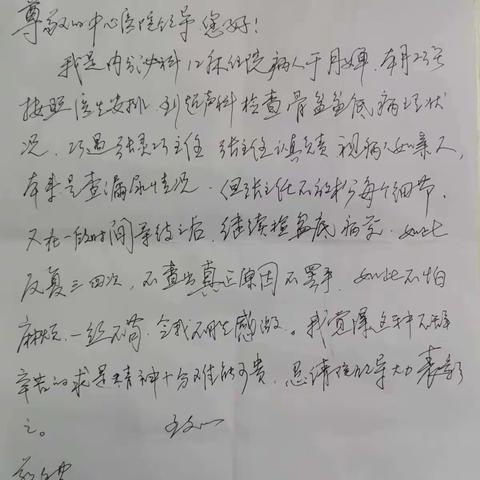 尊敬的中心医院领导,您好!
我是内分泌科12床住院病人于月婵,本月23号
按照医生安排,到超声科检查骨盆盆底病理状
况,巧遇张灵巧主任,张主任认真负责,视病人如亲人,
本来是查漏尿情况,但张主任不放过每个细节,
又在一段时间等待之后,继续检查盆底病变,如此
反复三四次,不查出真正原因不罢手,如此不怕
麻烦,一丝不苟,令我不胜感激。我觉得这种不辞
辛苦的求是精神十分难能可贵,恳请院领导大力表彰
之。 致以
敬礼